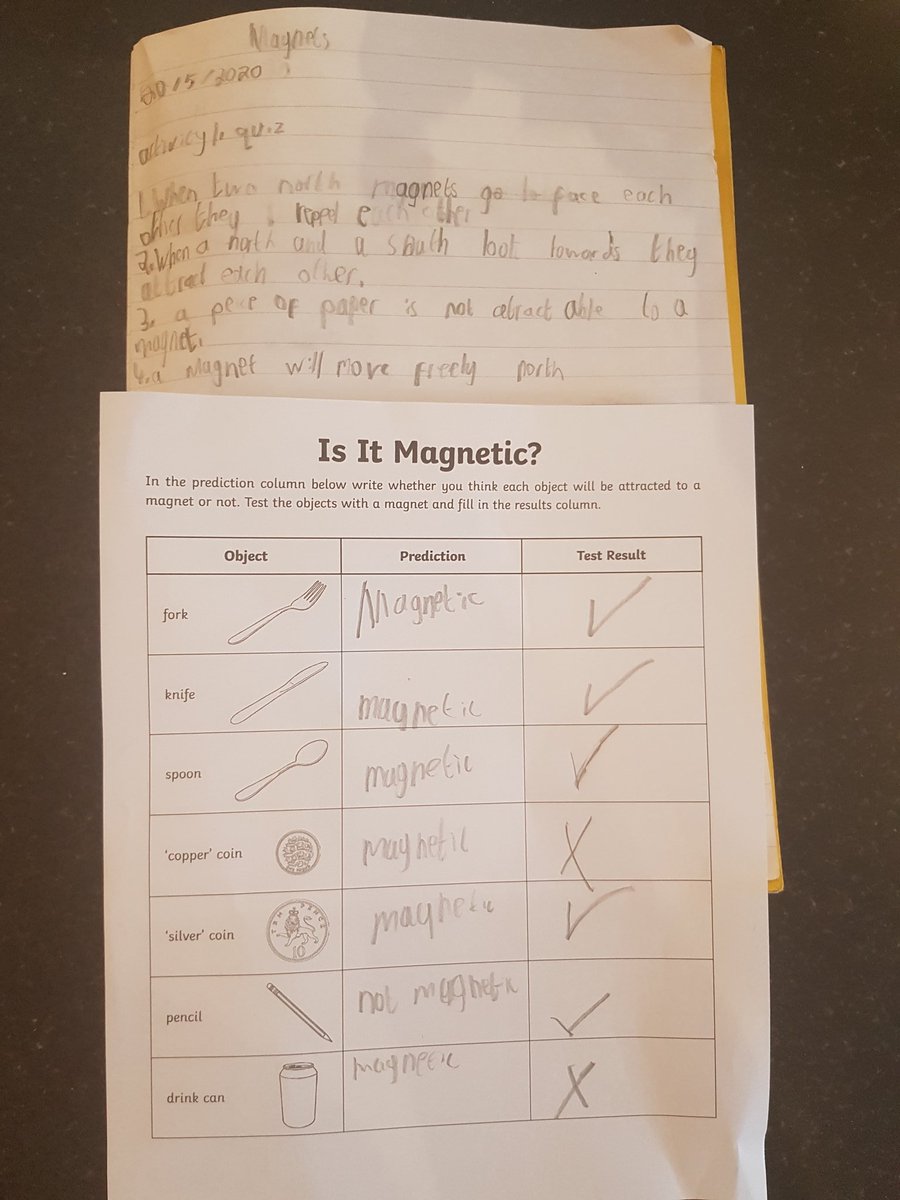 Magnets
20/5/2020
activity 1. quiz
1. When two north magnets go to face each
other they repel each other
2. When a north and a south look towards they
attract each other.
3. a pece of paper is not atract able to a
magnet.
4. a Magnet will move freely north
Is It Magnetic?
In the prediction column below write whether you think each object will be attracted to a
magnet or not. Test the objects with a magnet and fill in the results column.
Object Prediction Test Result
fork Magnetic ✓
knife magnetic ✓
spoon magnetic ✓
'copper' coin magnetic X
'silver' coin TEN PENCE 10 magnetic ✓
pencil not magnetic ✓
drink can magnetic X